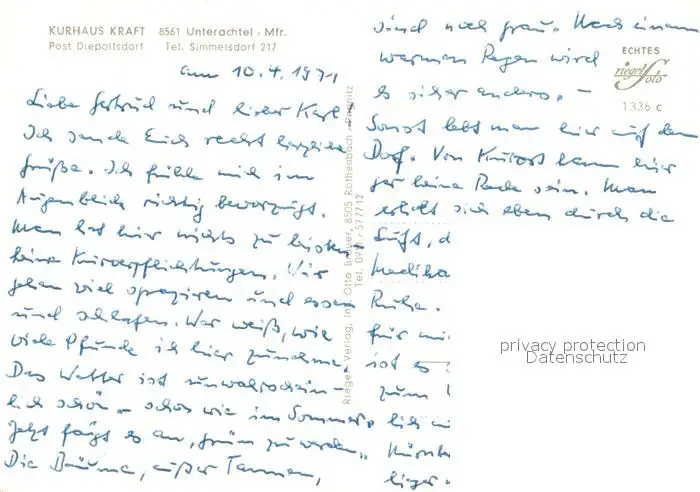 KURHAUS KRAFT 8561 Unterachtel / Mfr.
Post Diepoltsdorf Tel. Simmelsdorf 217
am 10.4.1971
Liebe Gertrud und lieber Karl!
Ich sende Euch recht herzliche
Grüße. Ich fühle mich im
Augenblick richtig bevorzugt.
Man hat hier nichts zu leisten,
keine Kurverpflichtungen. Wir
gehen viel spazieren und essen
und schlafen. Wer weiß, wie
viele Pfunde ich hier zunehme.
Das Wetter ist unwahrschein-
lich schön - schon wie im Sommer,
Jetzt fängt es an, grün zu werden.
Die Bäume, außer Tannen,
Riegel - Verlag, Inh. Otto Bauer, 8505 Röthenbach - Pegnitz
Tel. 0911 / 577712
sind noch grau. Nach einem
warmen Regen wird
es sicher anders. -
Sonst lebt man hier auf dem
Dorf. Von Kurort kann hier
gar keine Rede sein. Man
erholt sich eben durch die
Luft, d
Medika
Ruhe.
für mi
ist es
zum
lich
Nürnb
lieger
ECHTES
riegel Foto
1336 c
privacy protection
Datenschutz